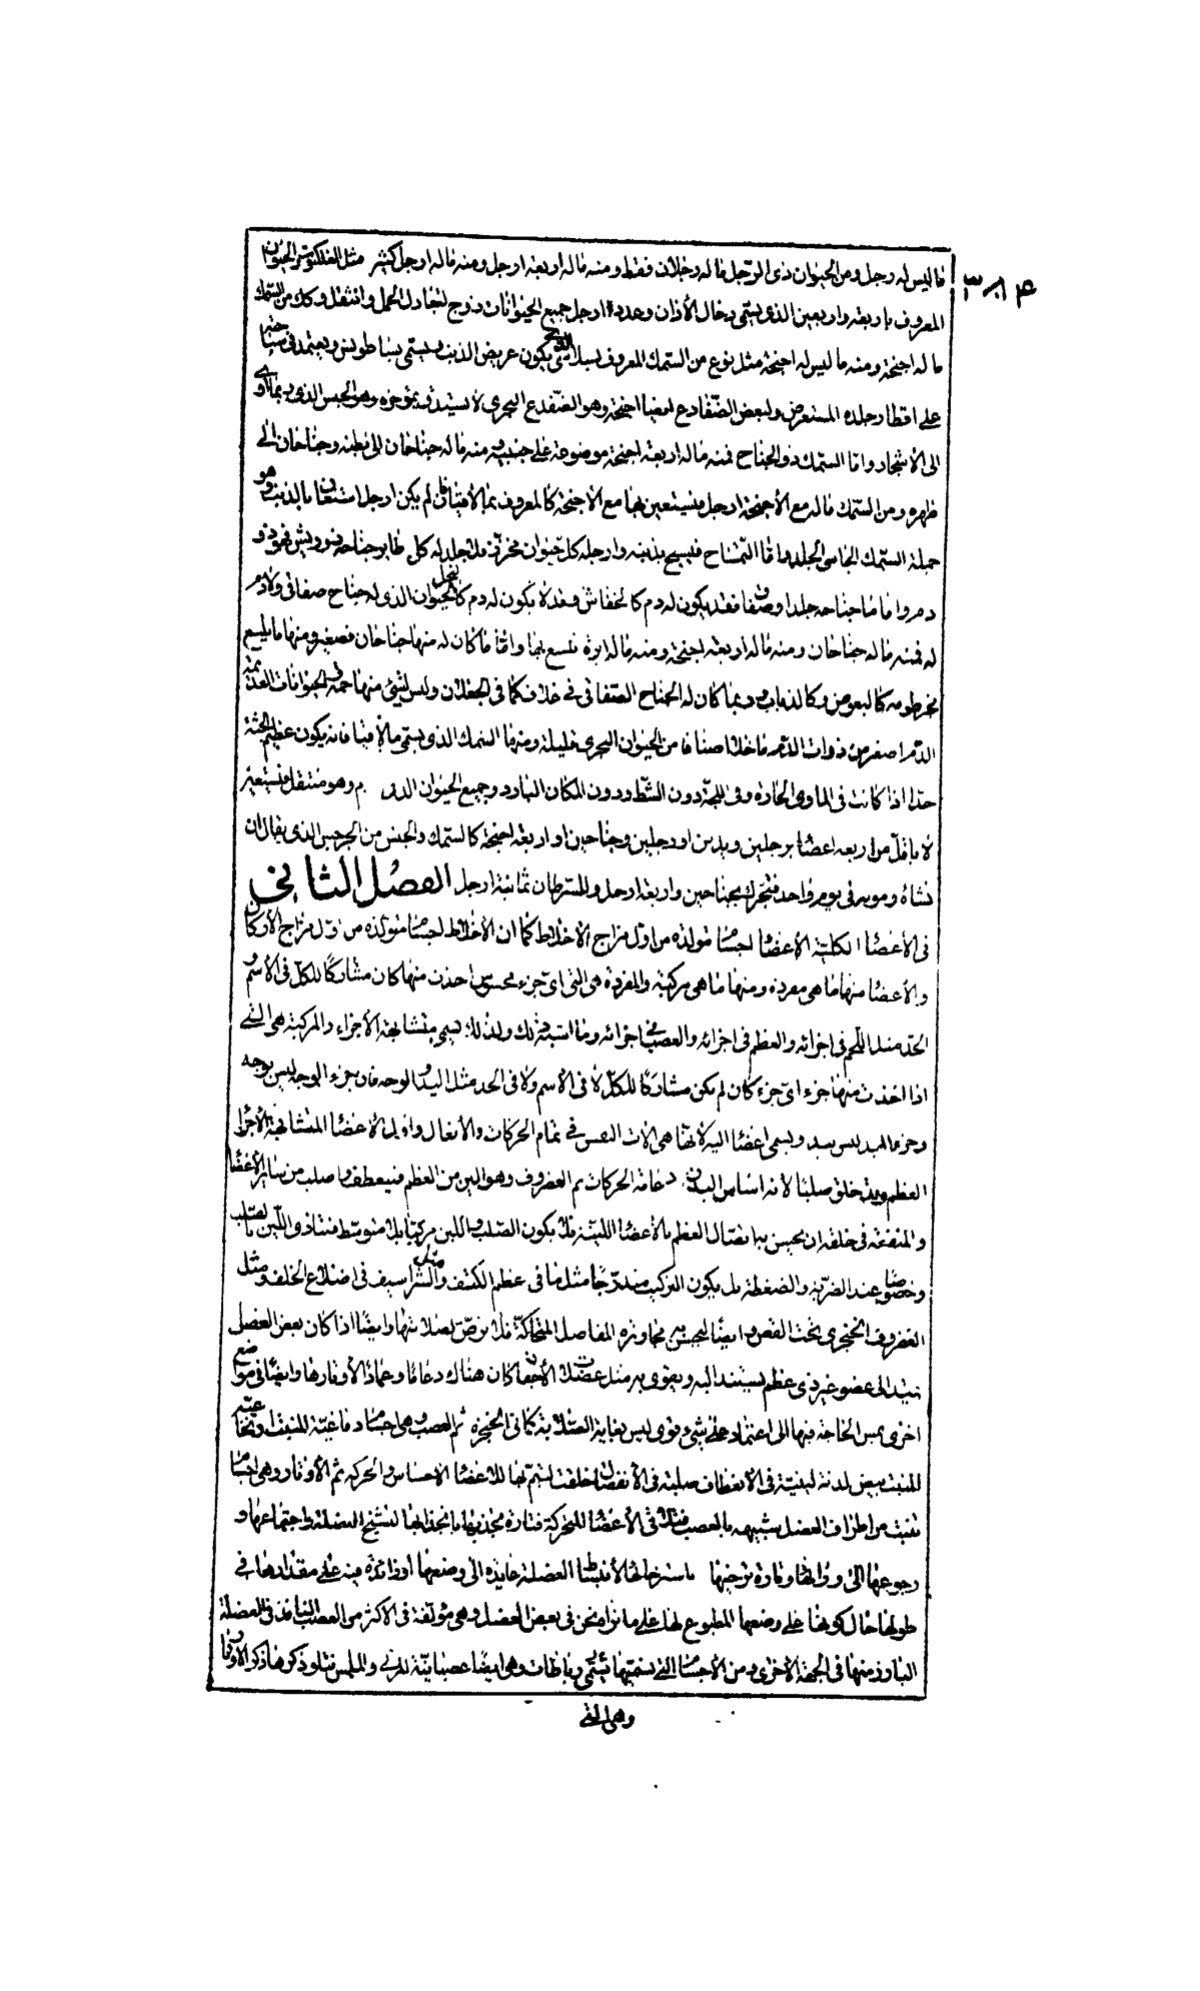 ٣٨٤
ما ليس له رجل ومن الحيوان ذى الرجل ما له رجلان فقط ومنه ما له اربعة ارجل ومنه ما له ارجل كثير مثل العنكبوت والحيوان
المعروف باربعة واربعين الذى يسمى دخال الأذان وعدد ارجل جميع الحيوانات زوج لتعادل الحمل والتنقل وكك من السمك
ما له اجنحة ومنه ما ليس له اجنحة مثل نوع من السمك المعروف يكون عريض الذنب ويسمى بساطوس ويعتمد فى سباحته
على اقطار جلده المستعرض ولبعض الضفادع ايضا اجنحة وهو الضفدع البحرى وهو الجنس الذى ربما اوى
الى الأشجار واما السمك ذو الجناح فمنه ما له اربعة اجنحة موضوعة على جنبيه ومنه ما له جناحان الى بطنه وجناحان الى
ظهره ومن السمك ما له مع الأجنحة ارجل فيستعين بها مع الأجنحة كالمعروف فان لم يكن ارجل استعان بالذنب وهو
جملة السمك الجاسى الجلد واما التمساح فيسبح بذنبه وارجله كل حيوان فلا جلد له كل طاير جناحه ذو ريش فهو ذو
دم واما ما جناحه جلد او صفا فقد يكون له دم كالخفاش وقد لا يكون له دم كالنحل الحيوان الذى له جناح صفاقى ولا دم
له فمنه ما له جناحان ومنه ما له اربعة اجنحة ومنه ما له ابرة تلسع بها واما ما كان له منها جناحان فصغير ومنها ما يلسع
بخرطومه كالبعوض وكالذباب وربما كان له الجناح الصفاقى فى غلاف كما فى الجعلان وليس لشئ منها حمة والحيوانات العديمة
الدم اصغر من ذوات الدم ما خلا اصنافا من الحيوان البحرى قليلة ومنها السمك الذى يسمى مالاقيا فانه يكون عظيم الجثة
جدا اذا كانت فى الماوى الحارة وفى اللجة دون الشط ودون المكان البارد وجميع الحيوان الدموى وهو منتقل فيستعين
لا باقل من اربعة اعضاء برجلين ويدين او رجلين وجناحين او اربعة اجنحة كالسمك والجنس من الجرجيس الذى يقال ان
نشاه وموته فى يوم واحد فيتحرك بجناحين واربعة ارجل وللسرطان ثمانية ارجل الفصل الثانى
فى الأعضاء الكلية الأعضاء اجسام متولدة من اول مزاج الأخلاط كما ان الأخلاط اجسام متولدة من اول مزاج الأركان
والأعضاء منها ما هى مفردة ومنها ما هى مركبة والمفردة هى التى اى جزء محسوس اخذت منها كان مشاركا للكل فى الاسم و
الحد مثل اللحم فى اجزائه والعظم فى اجزائه والعصب فى اجزائه وما اشبه ذلك ولذلك تسمى متشابهة الأجزاء والمركبة هى التى
اذا اخذت منها جزء اى جزء كان لم يكن مشاركا للكل لا فى الأسم ولا فى الحد مثل اليد والوجه فان جزء الوجه ليس بوجه
وجزء اليد ليس بيد ويسمى اعضاء الية لأنها هى الات النفس فى تمام الحركات والأفعال واول الأعضاء المتشابهة الأجزاء
العظم وقد خلق صلبا لأنه اساس البدن ودعامة الحركات ثم الغضروف وهو الين من العظم فينعطف واصلب من ساير الأعضاء
والمنفعة فى خلقه ان يحسن به اتصال العظم بالأعضاء اللينة فلا يكون الصلب واللين مركبا بلا متوسط فيتاذى اللين بالصلب
وخصوصا عند الضربة والضغطة بل يكون التركيب مندرجا مثل ما فى عظم الكتف ومثل الشراسيف فى اضلاع الخلف ومثل
الغضروف الخنجرى تحت القص وايضا ليحسن به مجاورة المفاصل المتحاكة فلا ترض لصلابتها وايضا اذا كان بعض العضل
يمتد الى عضو غير ذى عظم يستند اليه ويقوى به مثل عضلات الأجفان كان هناك دعاما وعمادا لأوتارها وايضا فى مواضع
اخرى يمس الحاجة فيها الى اعتماد على شئ قوى ليس بغاية الصلابة كما فى الحنجرة ثم العصب وهى اجسام دماغية المنبت او نخاعية
المنبت بيض لدنة لينة فى الأنعطاف صلبة فى الأنفصال خلقت ليتم بها للأعضاء الاحساس والحركة ثم الأوتار وهى اجسام
تنبت من اطراف العضل شبيهة بالعصب فتلاقى الأعضاء المتحركة فتارة تجذبها بانجذابها لتشنج العضلة واجتماعها و
رجوعها الى ورائها وتارة ترخيها باسترخائها لأنبساط العضلة عايدة الى وضعها او زائدة فيه على مقدارها فى
طولها حال كونها على وضعها المطبوع لها على ما نراه نحن فى بعض العضل وهى مؤلفة فى الأكثر من العصب النافذ فى العضلة
البارز منها فى الجهة الأخرى ومن الأجسام التى نسميها رباطات وهى ايضا عصبانية المرئى والملمس يتلو ذكرها ذكر الأوتار
وهى التى